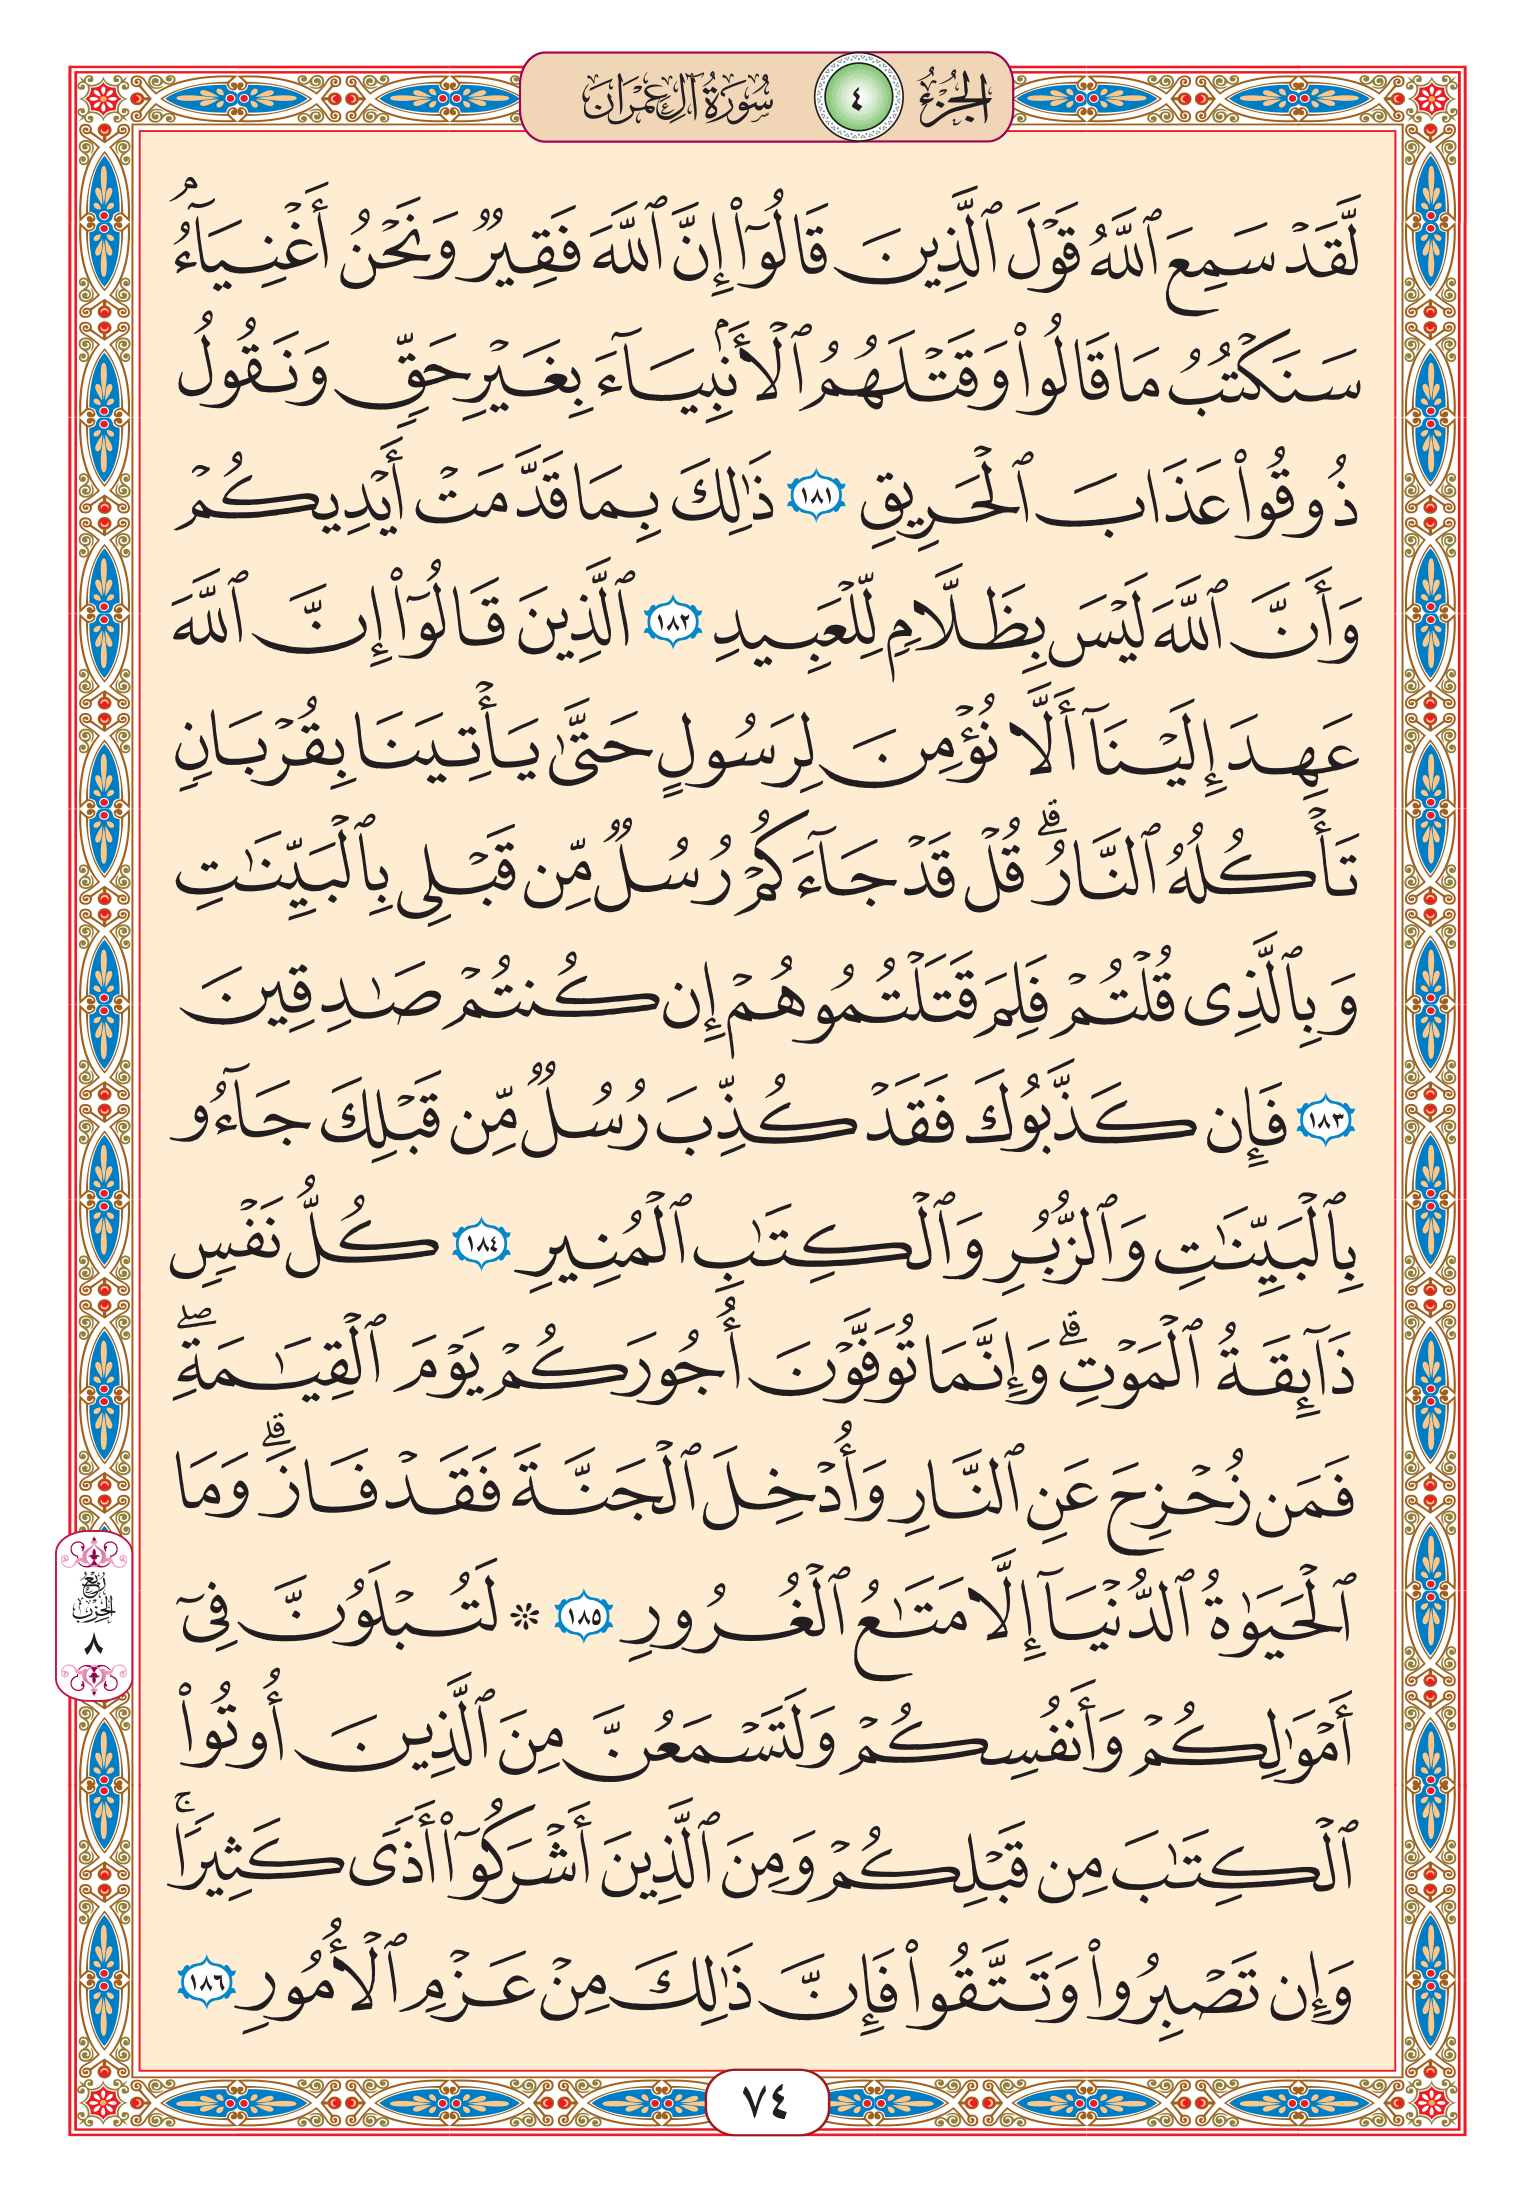 الجزء ٤ سورة آل عمران
لَّقَدْ سَمِعَ ٱللَّهُ قَوْلَ ٱلَّذِينَ قَالُوٓا۟ إِنَّ ٱللَّهَ فَقِيرٌ وَنَحْنُ أَغْنِيَآءُ ۘ
سَنَكْتُبُ مَا قَالُوا۟ وَقَتْلَهُمُ ٱلْأَنۢبِيَآءَ بِغَيْرِ حَقٍّ وَنَقُولُ
ذُوقُوا۟ عَذَابَ ٱلْحَرِيقِ ١٨١ ذَٰلِكَ بِمَا قَدَّمَتْ أَيْدِيكُمْ
وَأَنَّ ٱللَّهَ لَيْسَ بِظَلَّامٍ لِّلْعَبِيدِ ١٨٢ ٱلَّذِينَ قَالُوٓا۟ إِنَّ ٱللَّهَ
عَهِدَ إِلَيْنَآ أَلَّا نُؤْمِنَ لِرَسُولٍ حَتَّىٰ يَأْتِيَنَا بِقُرْبَانٍ
تَأْكُلُهُ ٱلنَّارُ ۗ قُلْ قَدْ جَآءَكُمْ رُسُلٌ مِّن قَبْلِى بِٱلْبَيِّنَٰتِ
وَبِٱلَّذِى قُلْتُمْ فَلِمَ قَتَلْتُمُوهُمْ إِن كُنتُمْ صَٰدِقِينَ
١٨٣ فَإِن كَذَّبُوكَ فَقَدْ كُذِّبَ رُسُلٌ مِّن قَبْلِكَ جَآءُو
بِٱلْبَيِّنَٰتِ وَٱلزُّبُرِ وَٱلْكِتَٰبِ ٱلْمُنِيرِ ١٨٤ كُلُّ نَفْسٍ
ذَآئِقَةُ ٱلْمَوْتِ ۗ وَإِنَّمَا تُوَفَّوْنَ أُجُورَكُمْ يَوْمَ ٱلْقِيَٰمَةِ ۖ
فَمَن زُحْزِحَ عَنِ ٱلنَّارِ وَأُدْخِلَ ٱلْجَنَّةَ فَقَدْ فَازَ ۗ وَمَا
ٱلْحَيَوٰةُ ٱلدُّنْيَآ إِلَّا مَتَٰعُ ٱلْغُرُورِ ١٨٥ ۞ لَتُبْلَوُنَّ فِىٓ
أَمْوَٰلِكُمْ وَأَنفُسِكُمْ وَلَتَسْمَعُنَّ مِنَ ٱلَّذِينَ أُوتُوا۟
ٱلْكِتَٰبَ مِن قَبْلِكُمْ وَمِنَ ٱلَّذِينَ أَشْرَكُوٓا۟ أَذًى كَثِيرًا ۚ
وَإِن تَصْبِرُوا۟ وَتَتَّقُوا۟ فَإِنَّ ذَٰلِكَ مِنْ عَزْمِ ٱلْأُمُورِ ١٨٦
ربع
الحزب
٨
٧٤